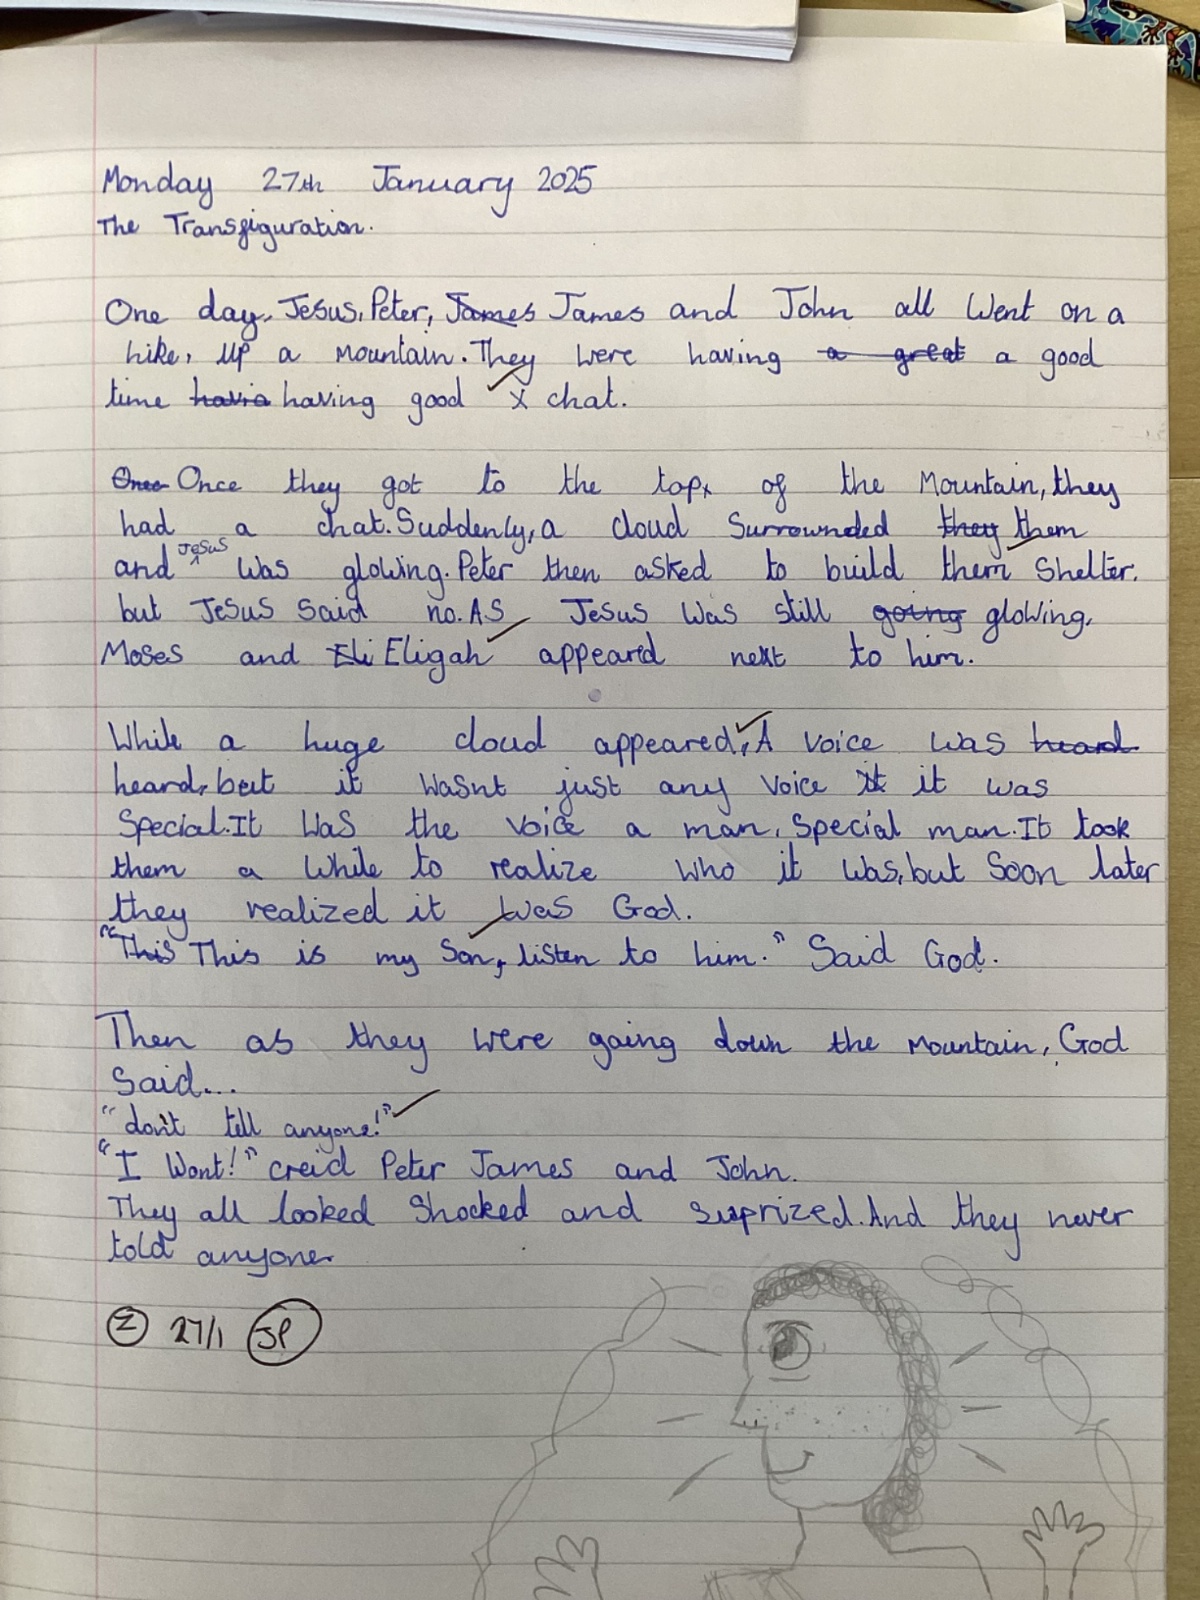 Monday 27th January 2025
The Transfiguration.
One day, Jesus, Peter, James James and John all went on a
hike, up a mountain. They were having a great a good
time havia having good x chat.
Once Once they got to the top, of the Mountain, they
had a chat. Suddenly, a cloud Surrownded they them
and Jesus was glowing. Peter then asked to build them Shelter.
but Jesus Said no. AS Jesus was still going glowing,
Moses and Eli Eligah appeared next to him.
While a huge cloud appeared, A voice was heard
heard, but it wasnt just any voice it it was
Special. It was the voice a man, Special man. It took
them a while to realize who it was, but Soon later
they realized it was God.
"This This is my Son, listen to him." Said God.
Then as they were going down the Mountain, God
Said...
"don't tell anyone!"
"I Wont!" creid Peter James and John.
They all looked Shocked and suprized. And they never
told anyone.
27/1 JP